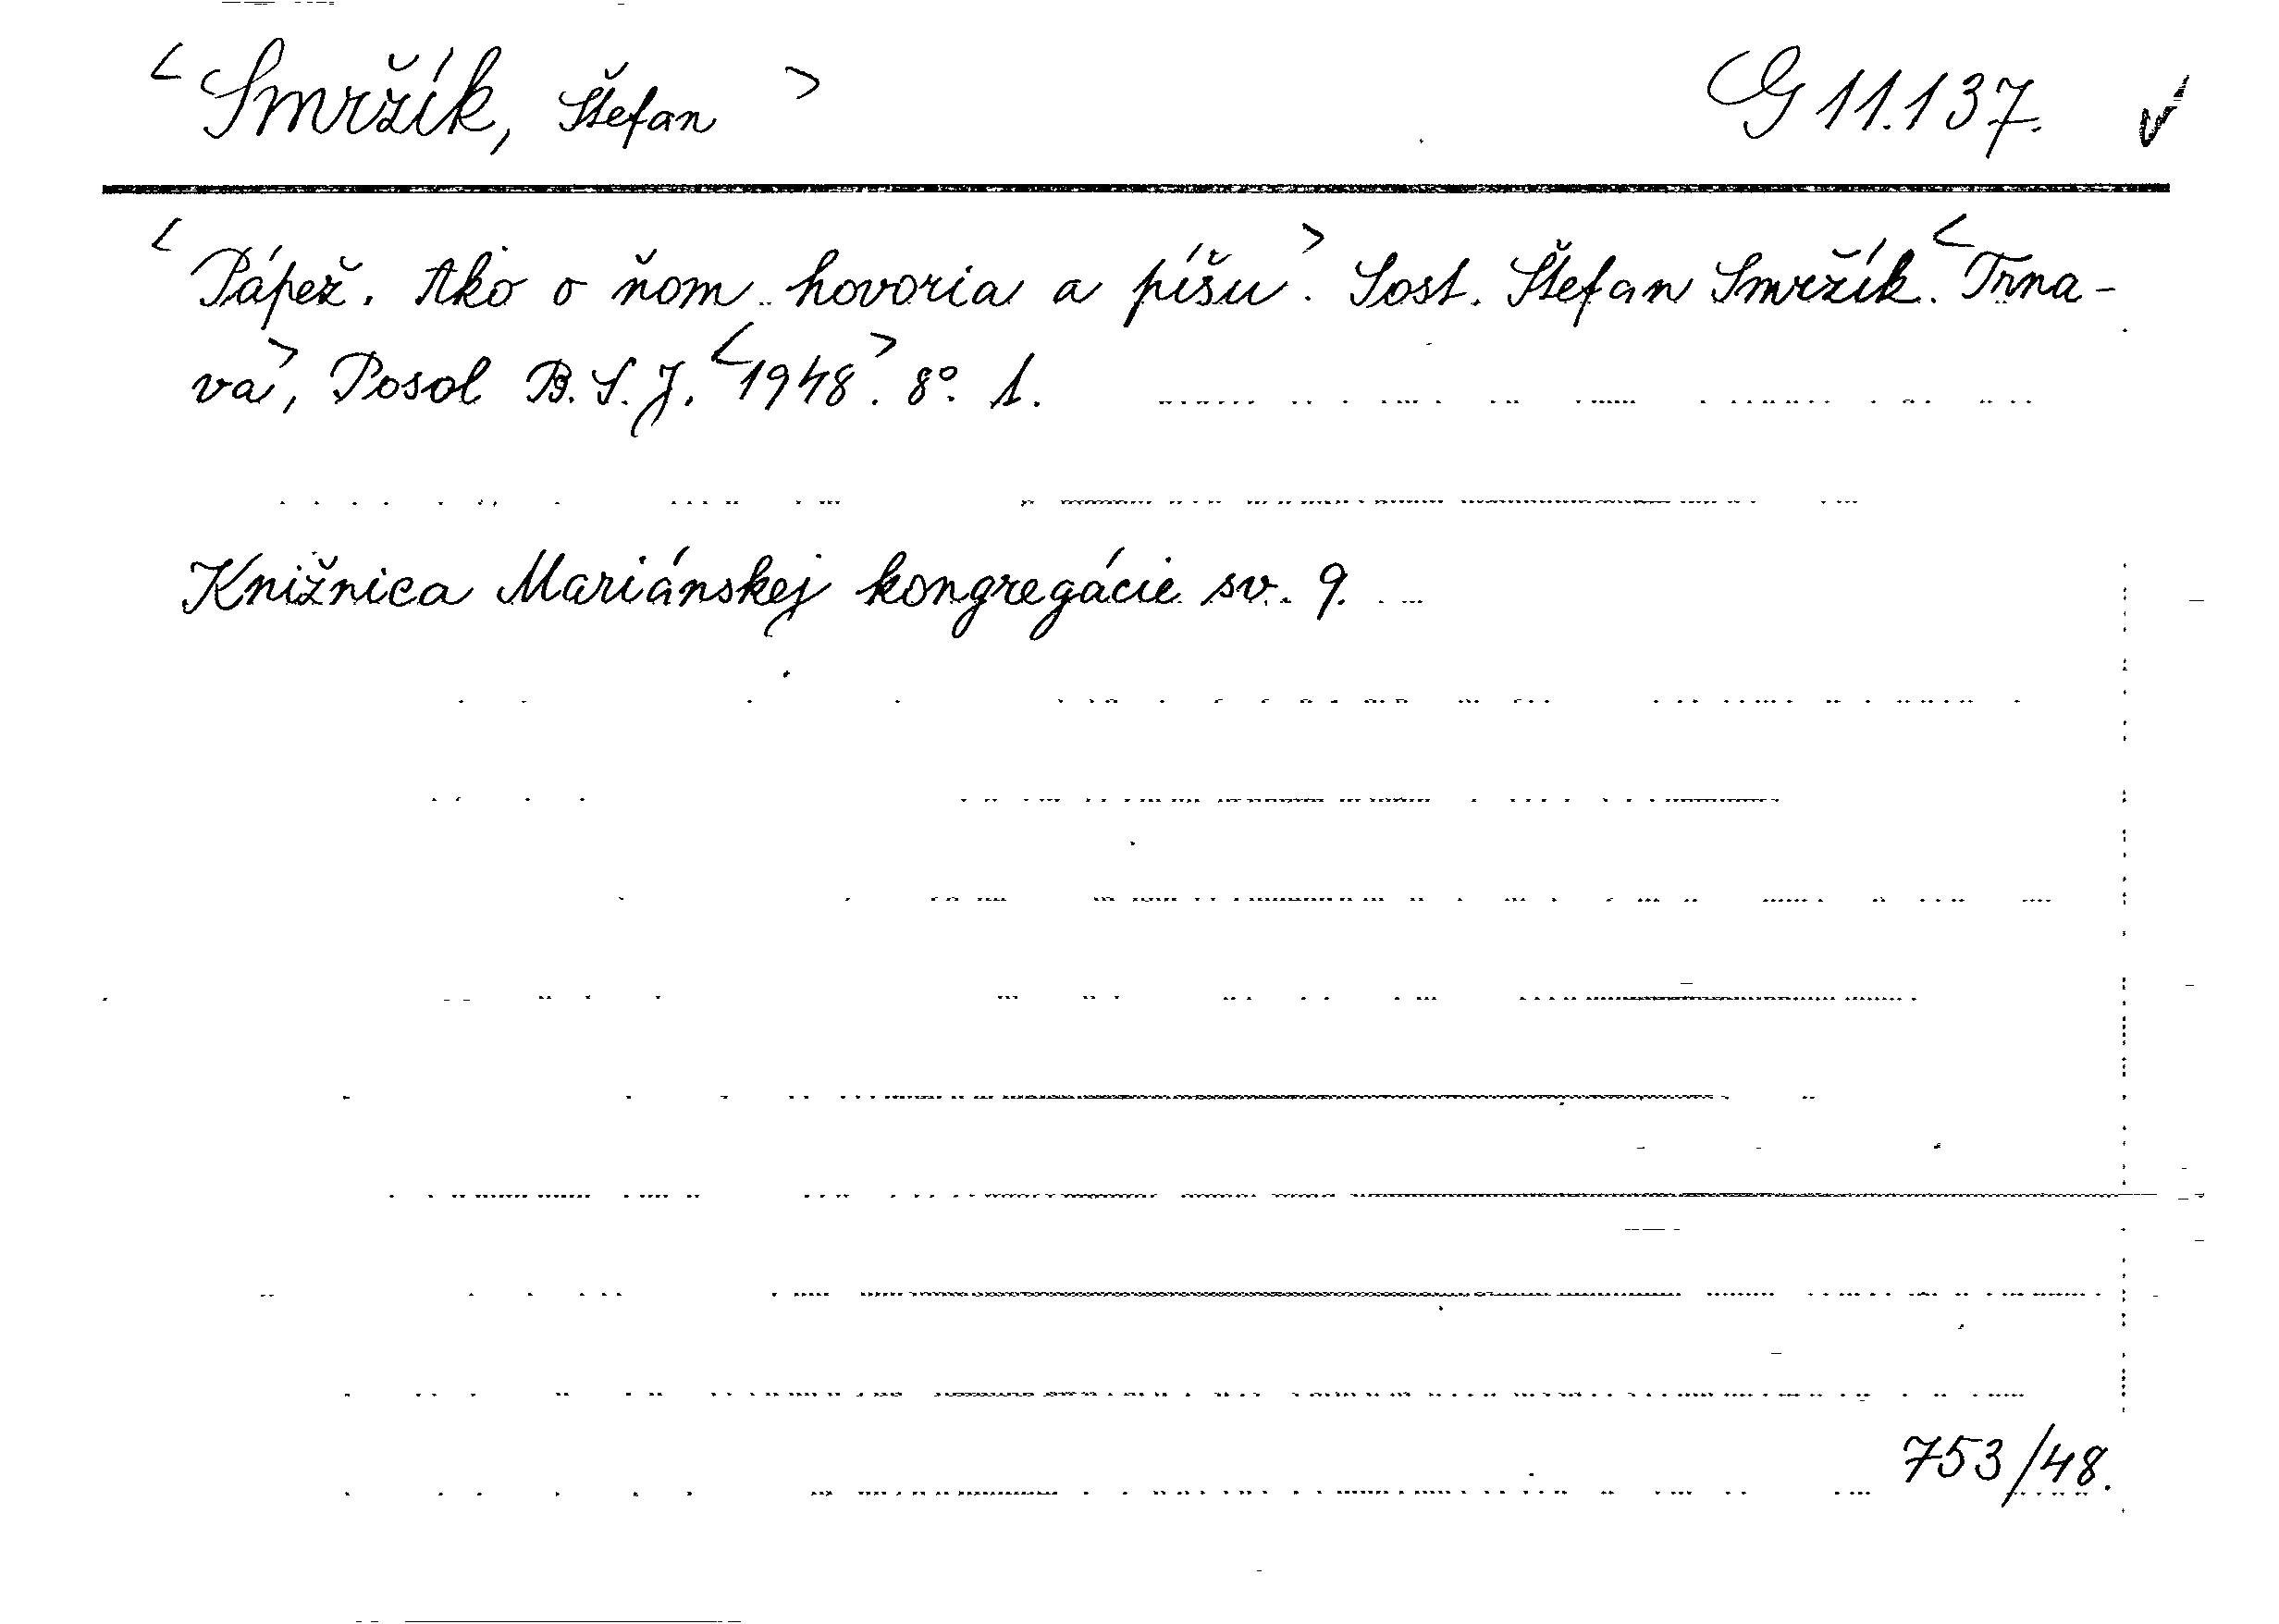 <Smržík, Štefan> G 11.137. ✓
<Pápež. Ako o ňom hovoria a píšu>. Sost. Štefan Smržík. <Trna-
va>, Posol B. S. J. <1948>. 8°. 1.
Knižnica Mariánskej kongregácie sv. 9.
753/48.